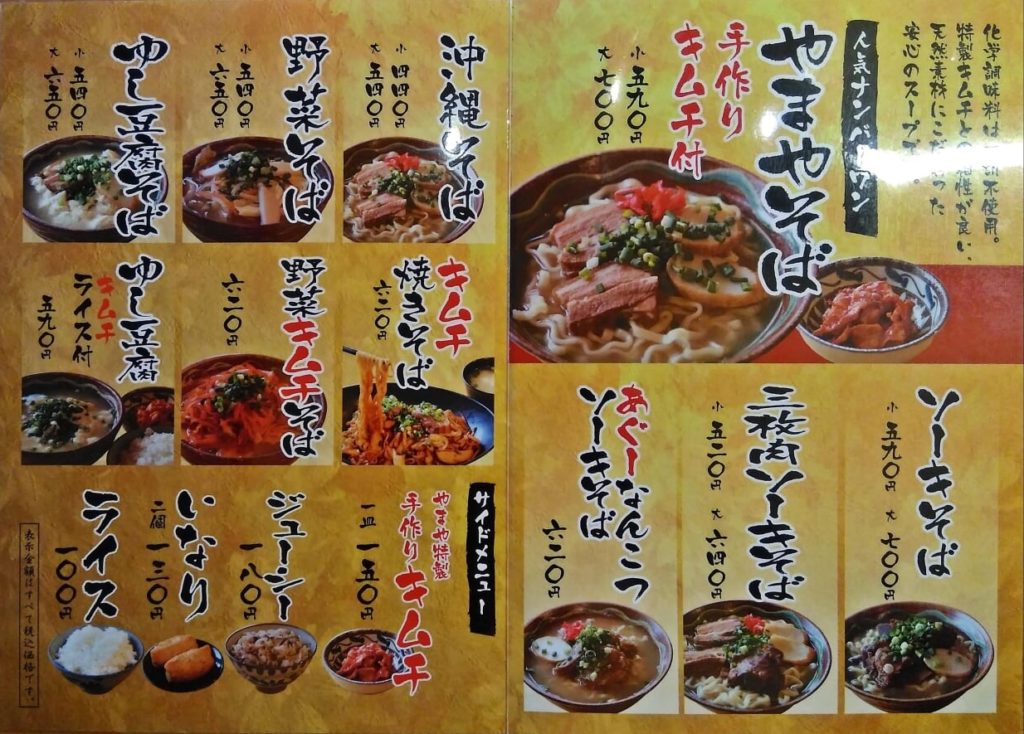 化学調味料は一切不使用。
特製キムチとの相性が良い、
天然素材にこだわった
安心のスープです。
人気ナンバーワン
やまやそば
手作り
キムチ付
小 五九〇円
大 七〇〇円
ソーキそば
小 五九〇円 大 七〇〇円
三枚肉ソーキそば
小 五二〇円 大 六四〇円
あぐーなんこつ
ソーキそば
六二〇円
沖縄そば
小 四四〇円
大 五四〇円
野菜そば
小 五四〇円
大 六五〇円
ゆし豆腐そば
小 五四〇円
大 六五〇円
キムチ
焼きそば
六二〇円
野菜キムチそば
六二〇円
ゆし豆腐
キムチ
ライス付
五九〇円
サイドメニュー
やまや特製
手作りキムチ
一皿 一五〇円
ジューシー
一八〇円
いなり
二個 一三〇円
ライス
一〇〇円
表示金額はすべて税込価格です。